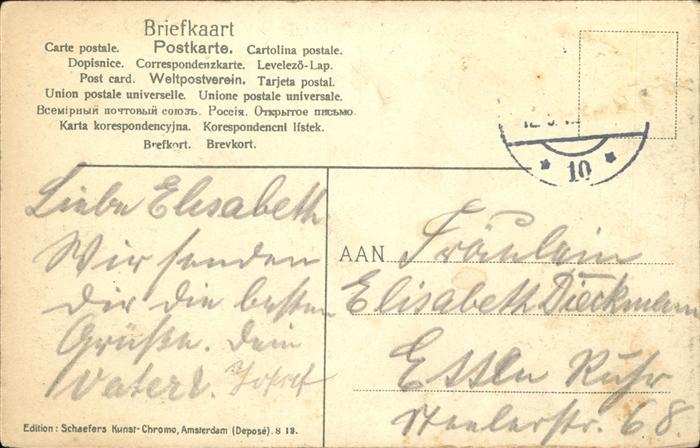 Briefkaart
Carte postale. Postkarte. Cartolina postale.
Dopisnice. Correspondenzkarte. Levelező-Lap.
Post card. Weltpostverein. Tarjeta postal.
Union postale universelle. Unione postale universale.
Всемірный почтовый союзъ. Россія. Открытое письмо.
Karta korespondencyjna. Korespondencni lístek.
Brefkort. Brevkort.
* 10 *
Liebe Elisabeth
Wir senden
Dir die besten
Grüße. Dein
Vater u. Josef
AAN Fräulein
Elisabeth Dieckmann
Essen Ruhr
Steelerstr. 68.
Edition: Schaefers Kunst-Chromo, Amsterdam (Deposé). S 13.